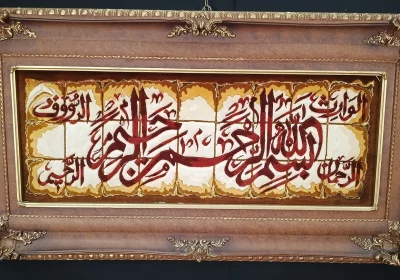 الوارث
الرؤوف
بسم الله الرحمن الرحيم
الرحمن
الرحيم